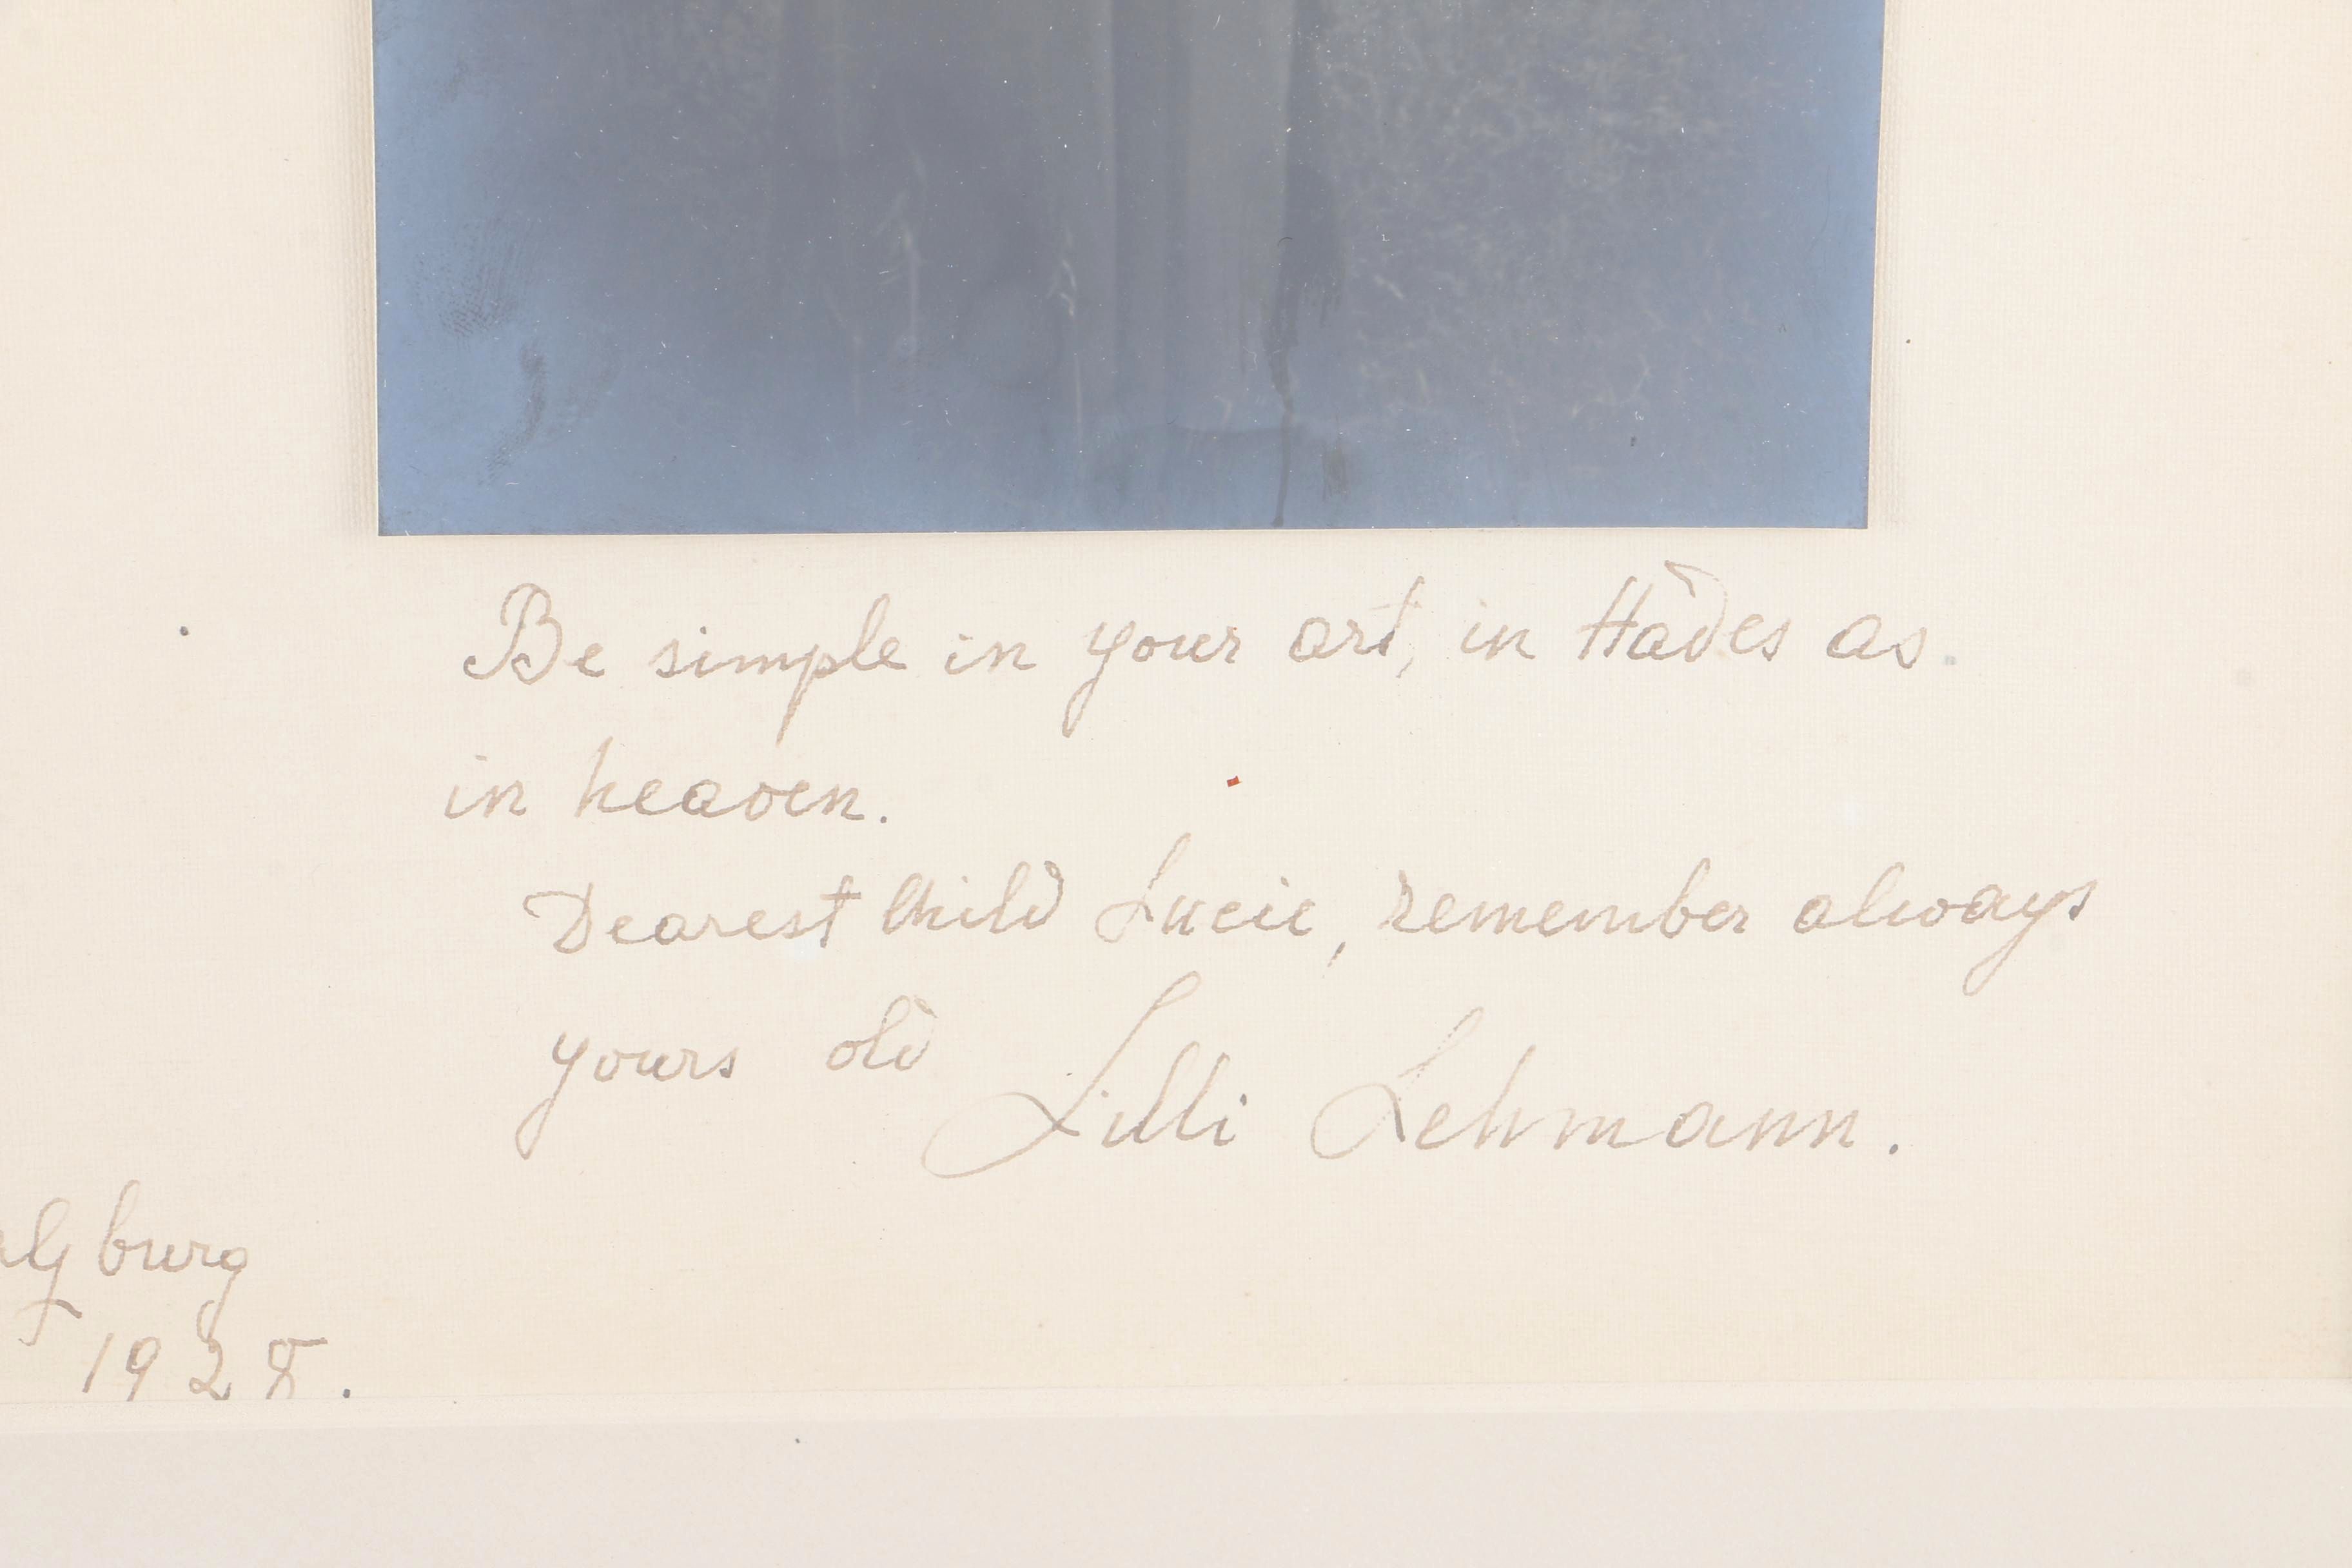 Be simple in your art, in Hades as
in heaven.
Dearest Child Lucie, remember always
yours old Lilli Lehmann.
alzburg
1928.